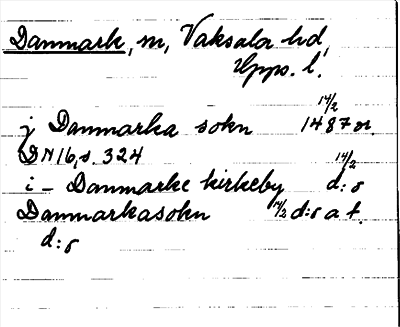 Danmark, sn, Vaksala hd,
Upps. l.
j Danmarka sokn 14/2 1487 or.
DN 16, s. 324
i - Danmarke kirkeby 14/2 d:o
Danmarkasokn 14/2 d:o a t.
d:o